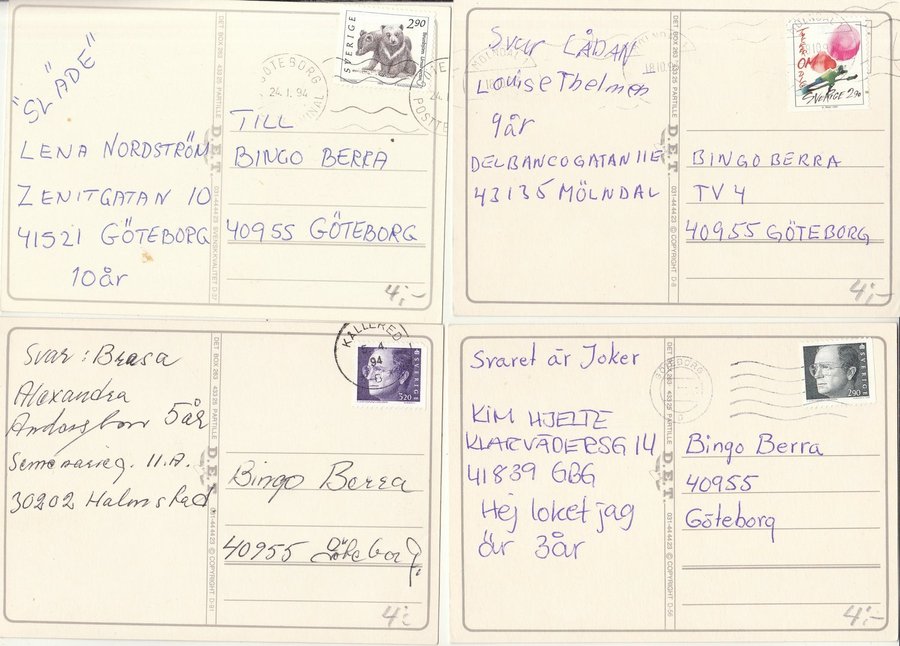 "SLÄDE"
LENA NORDSTRÖM
ZENITGATAN 10
41521 GÖTEBORG
10år
SVERIGE 2.90
GÖTEBORG
24.1.94
TILL
BINGO BERRA
40955 GÖTEBORG
DET BOX 263 433 25 PARTILLE
D.E.T.
031-44 44 23 SVENSK KVALITET D-37
4:-
Svar LÅDAN
Louise Thelmen
9år
DELBANCOGATAN 11E
43135 MÖLNDAL
MÖLNDAL 1
SVERIGE 2.90
BINGO BERRA
TV 4
40955 GÖTEBORG
DET BOX 263 433 25 PARTILLE
D.E.T.
031-44 44 23 © COPYRIGHT D-8
4:-
Svar: Brasa
Alexandra
5 år
11.A.
30202 Halmstad
KÅLLERED
4.
94
SVERIGE
3.20
Bingo Berra
40955 Göteborg.
DET BOX 263 433 25 PARTILLE
D.E.T.
031-44 44 23 © COPYRIGHT D-91
4:-
Svaret är Joker
KIM HJELTE
KLARVÄDERSG 14
41839 GBG
Hej loket jag
är 3år
GÖTEBORG
SVERIGE
2.90
Bingo Berra
40955
Göteborg
DET BOX 263 433 25 PARTILLE
D.E.T.
031-44 44 23 © COPYRIGHT D-56
4:-